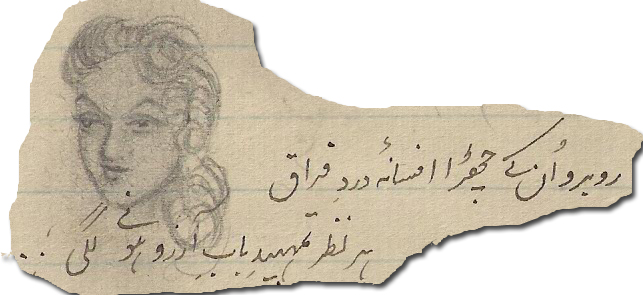 روبرو اُن کے چھڑا افسانۂ دردِ فراق
ہر نظر تمہیدِ بابِ آرزو ہو نے لگی